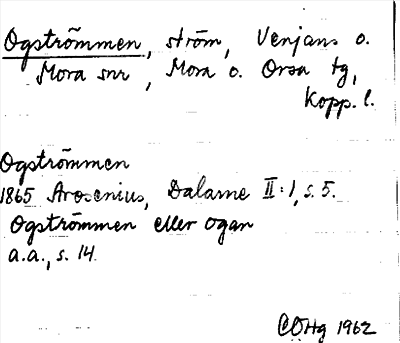 Ogströmmen, ström, Venjans o.
Mora snr, Mora o. Orsa tg,
Kopp. l.
Ogströmmen
1865 Arosenius, Dalarne II:1, s. 5.
Ogströmmen eller ogan
a.a., s. 14.
COHg 1962